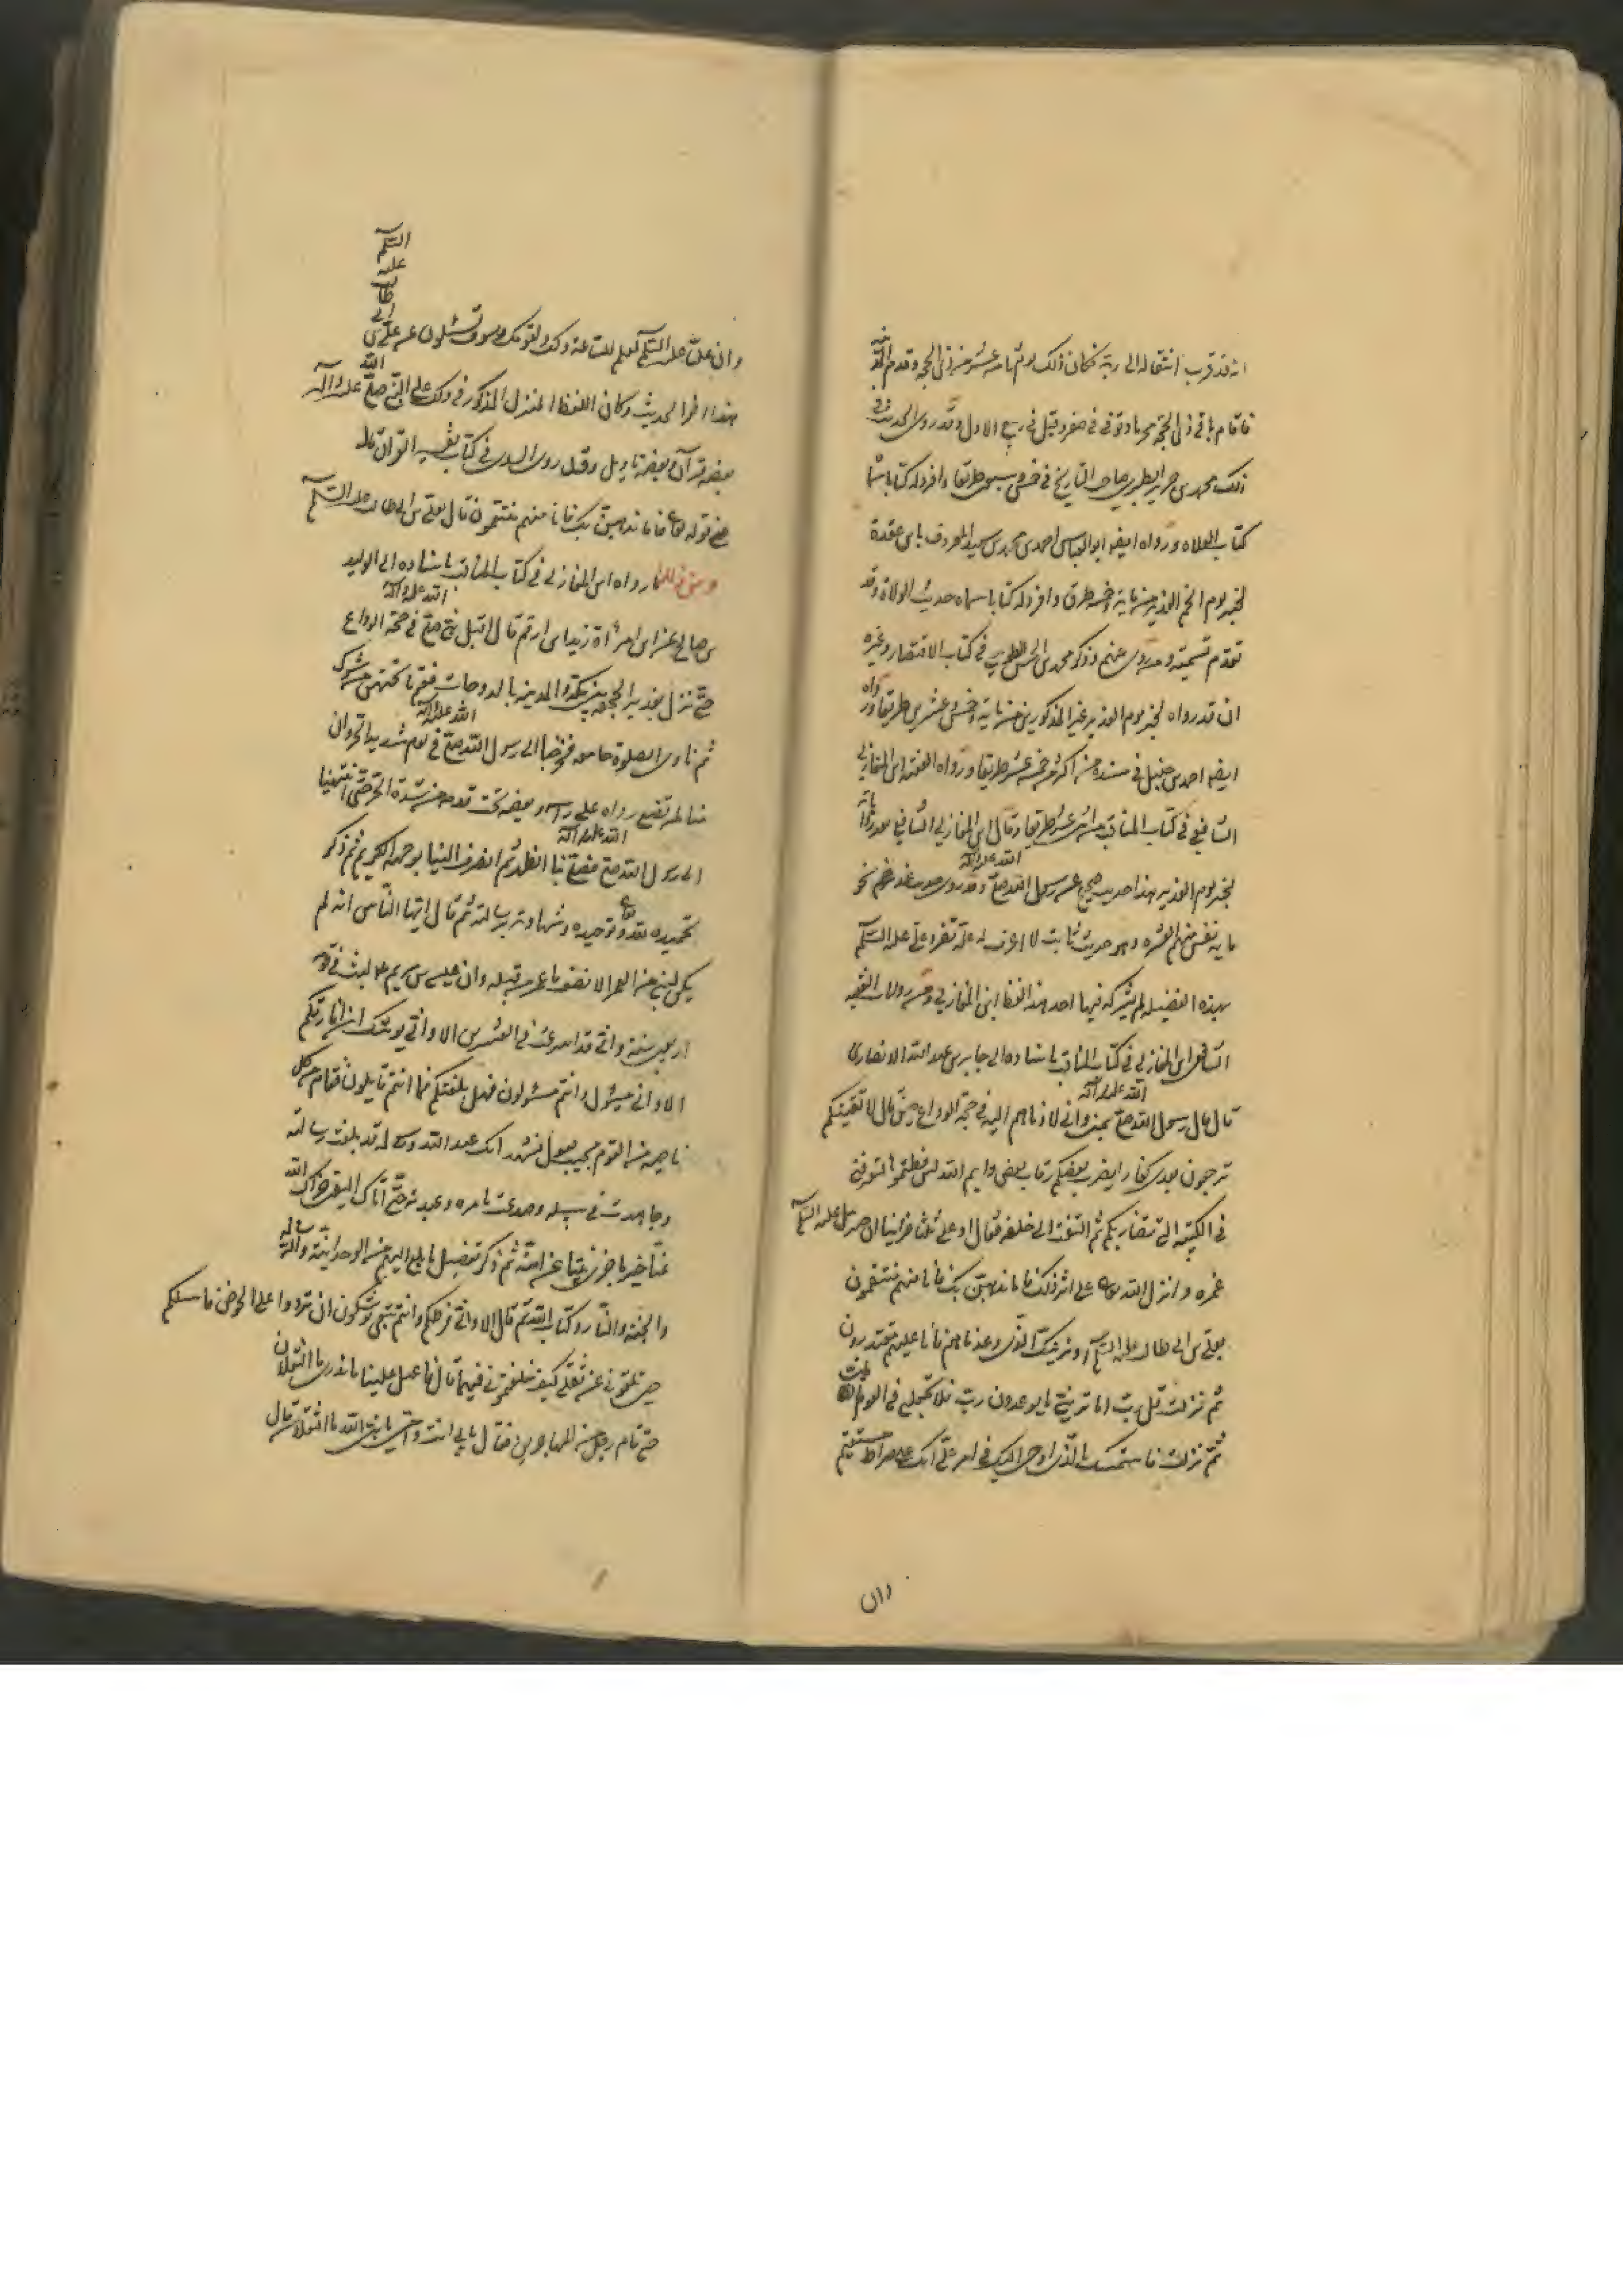 انه قد قرب انتقاله الى ربه فكان ذلك يوم ثامن عشر من ذى الحجه و قدم المدينه
فاقام باقى ذى الحجه محرما و توفى فى صفر و قيل فى ربيع الاول و قد روى الحديث فى
ذلك محمد بن جرير الطبرى صاحب التاريخ فى خمس و سبعين طريقا و افرد له كتابا سماه
كتاب الولاه و رواه ايضا ابو العباس احمد بن محمد بن سعيد المعروف بابن عقدة
لخبر يوم الخم الغدير من مايه و خمسه طرق و افرد له كتابا سماه حديث الولاة و قد
تقدم تسميته و من روى عنهم و ذكر محمد بن الحسن الطوسى فى كتاب الاقتصار و غيره
ان قد رواه لخبر يوم الغدير غير المذكورين من ماية و خمس و عشرين طريقا و رواه
ايضا احمد بن حنبل فى مسنده من اكثر من خمسه عشر طريقا و رواه الفقيه ابن المغازلى
الشافعى فى كتاب المناقب من اثنى عشر طريقا و قال ابن المغازلى الشافعى بعد رواياته
لخبر يوم الغدير هذا حديث صحيح عن رسول الله صلى الله عليه و آله و قد روى حديث غدير خم نحو
ما ية نفس منهم العشره و هو حديث ثابت لا اعرف له علة تفرد على عليه السلم
بهذه الفضيله لم يشركه فيها احد هذا لفظ ابن المغازلى و من روايات الفقيه
الشافعى ابن المغازلى فى كتاب المناقب باسناده الى جابر بن عبد الله الانصارى
قال قال رسول الله صلى الله عليه و آله بمنى و انى لادناهم اليه فى حجة الوداع حين قال لا تفينكم
ترجعون بعدى كفارا يضرب بعضكم رقاب بعض و ايم الله لئن فعلتموها لتعرفنى
فى الكتيبه التى تضاربكم ثم التفت الى خلفه فقال او على ثلثا فراينا ان جبرئيل عليه السلم
غمزه و انزل الله تعالى على اثر ذلك فاما نذهبن بك فانا منهم منتقمون
بعلى بن ابى طالب عليه السلم او نرينك الذى وعدناهم فانا عليهم مقتدرون
ثم نزلت قل رب اما ترينى ما يوعدون رب فلا تجعلنى فى القوم الظالمين
ثم نزلت فاستمسك بالذى اوحى اليك فى امر على انك على صراط مستقيم
وان
وان عليا عليه السلم لعلم للساعة و لك و لقومك و سوف تسئلون عن على بن ابى طالب عليه السلم
هذا اخر الحديث و كان اللفظ المنزل المذكور فى ذلك على النبى صلى الله عليه و آله
بعضه قرآن و بعضه تاويل و قد روى السدى فى كتاب تفسير القرآن له
فى قوله تعالى فاما نذهبن بك فانا منهم منتقمون قال بعلى بن ابى طالب عليه السلم
رواه ابن المغازلى فى كتاب المناقب باسناده الى الوليد
بن صالح عن ابن امرأة زيد بن ارقم قال اقبل نبى صلى الله عليه و آله فى حجة الوداع
حتى نزل بغدير الجحفه بين مكة و المدينه بالدوحات فقم ما تحتهن من شوك
ثم نادى الصلوة جامعه فخرجنا الى رسول الله صلى الله عليه و آله فى يوم شديد الحر و ان
منا لمن يضع رداه على راسه و بعضه تحت قدميه من شدة الحر حتى انتهينا
الى رسول الله صلى الله عليه و آله فصلى بنا الظهر ثم انصرف الينا بوجهه الكريم ثم ذكر
تحميده لله تعالى و توحيده و شهادته برسالته ثم قال ايها الناس انه لم
يكن لنبى من العمر الا نصف ما عمر من قبله و ان عيسى بن مريم ع لبث فى قومه
اربعين سنة و انى قد اسرعت فى العشرين الا و انى يوشك ان افارقكم
الا و انى مسئول و انتم مسئولون فهل بلغتكم فما انتم قايلون فقام من كل
ناحيه من القوم مجيب يقول نشهد انك عبد الله و رسوله قد بلغت رسالته
و جاهدت فى سبيله و صدعت بامره و عبدته حتى اتاك اليقين جزاك الله
عنا خير ما جزى نبيا عن امته ثم ذكر تفضيل ما بلغ اليهم من الوحدانية و الرسالة
و الجنه و النار و كتاب الله ثم قال الا و انى فرطكم و انتم تبعى توشكون ان تردوا على الحوض فاسئلكم
حين تلقونى عن ثقلى كيف خلفتمونى فيهما قال فاعيل علينا ما ندرى ما الثقلان
حتى قام رجل من المهاجرين فقال بابى انت و امى يا نبى الله ما الثقلان قال